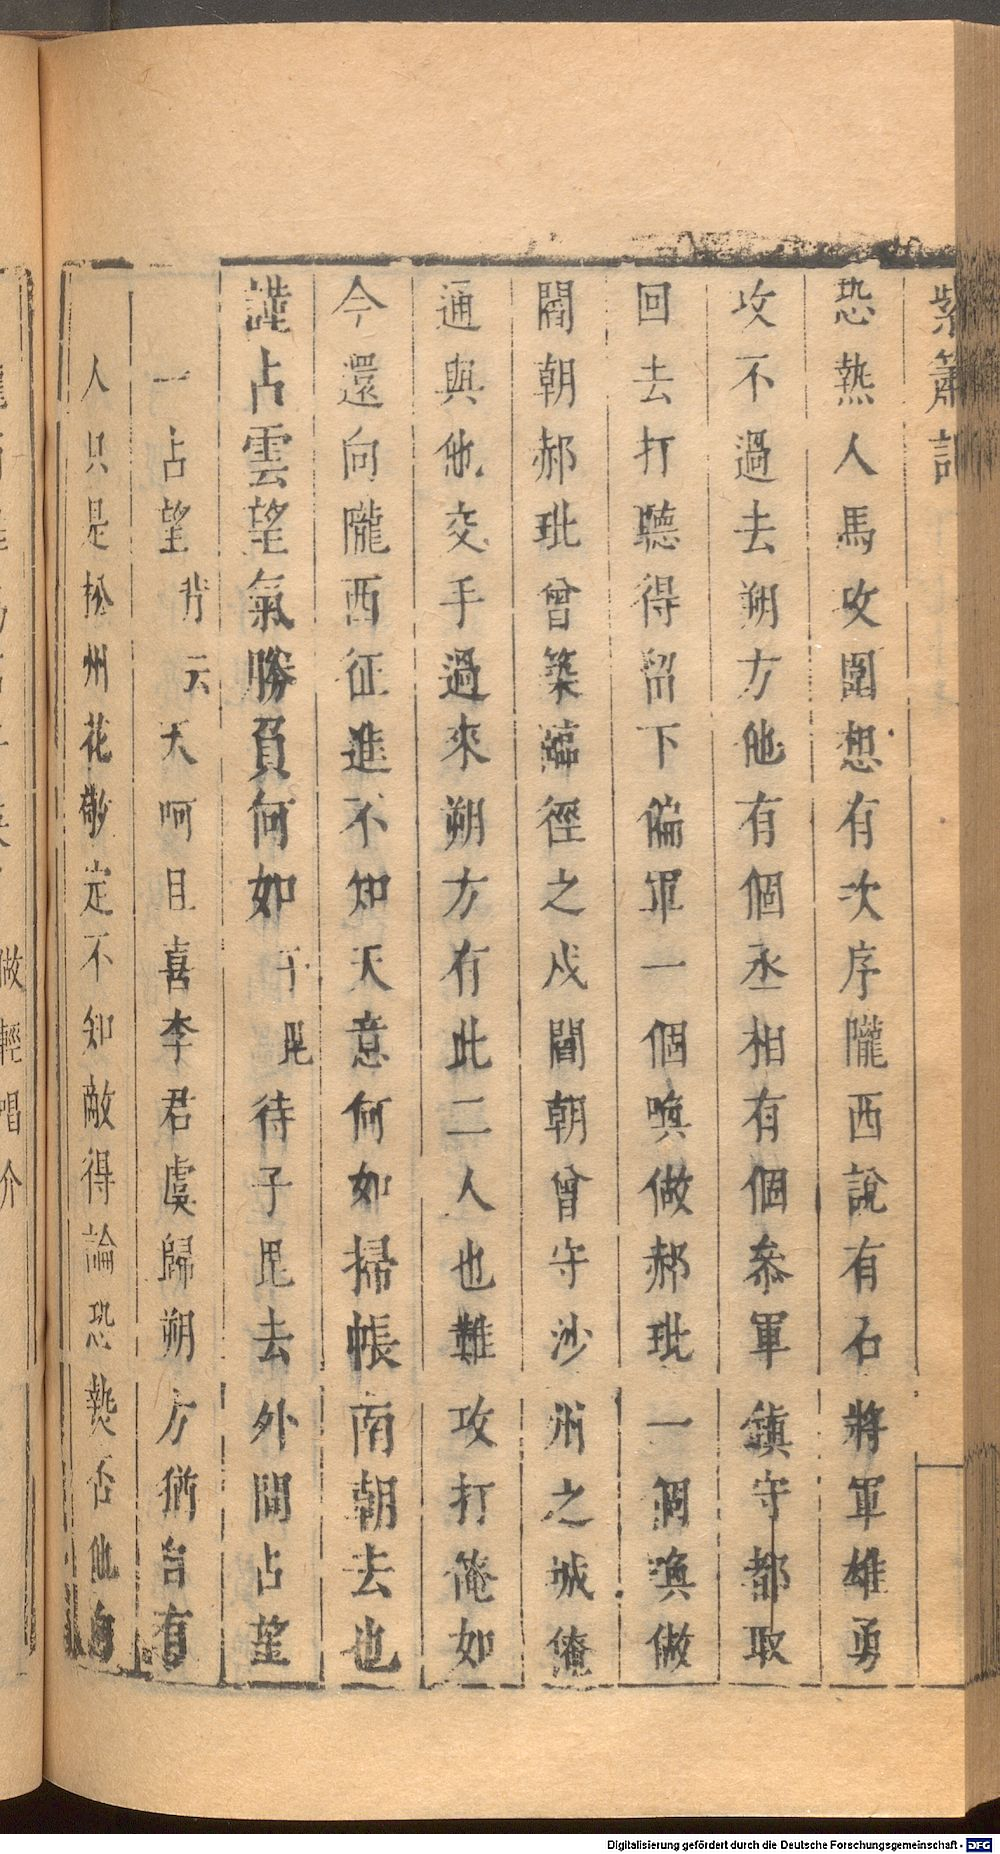 紫簫記
恐𤍠人馬攻圍想有次序隴西說有石將軍雄勇
攻不過去朔方他有個丞相有個叅軍鎮守都取
回去打聽得留下偏軍一個喚做郝玼一個喚做
閻朝郝玼曾築臨徑之戍閻朝曾守沙州之城俺
通與他交手過來朔方有此二人也難攻打俺如
今還向隴西征進不知天意何如掃帳南朝去也
誰占雲望氣勝負何如子毘待子毘去外間占望
一占望背云天呵且喜李君虞歸朔方猶自有
人只是松州花敬定不知敵得論恐𤍠否他有
做輕唱介
Digitalisierung gefördert durch die Deutsche Forschungsgemeinschaft - DFG